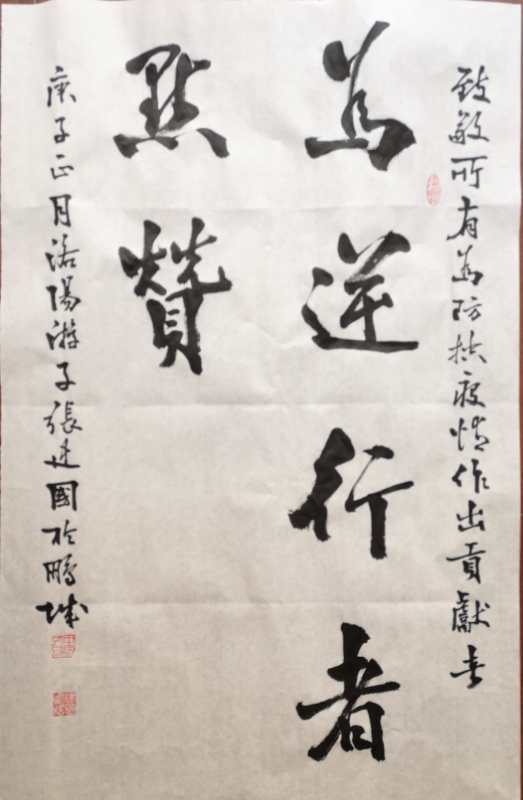 致敬所有為防疫情作出貢獻者
為逆行者
點贊
庚子正月洛陽游子張建國於鵬城